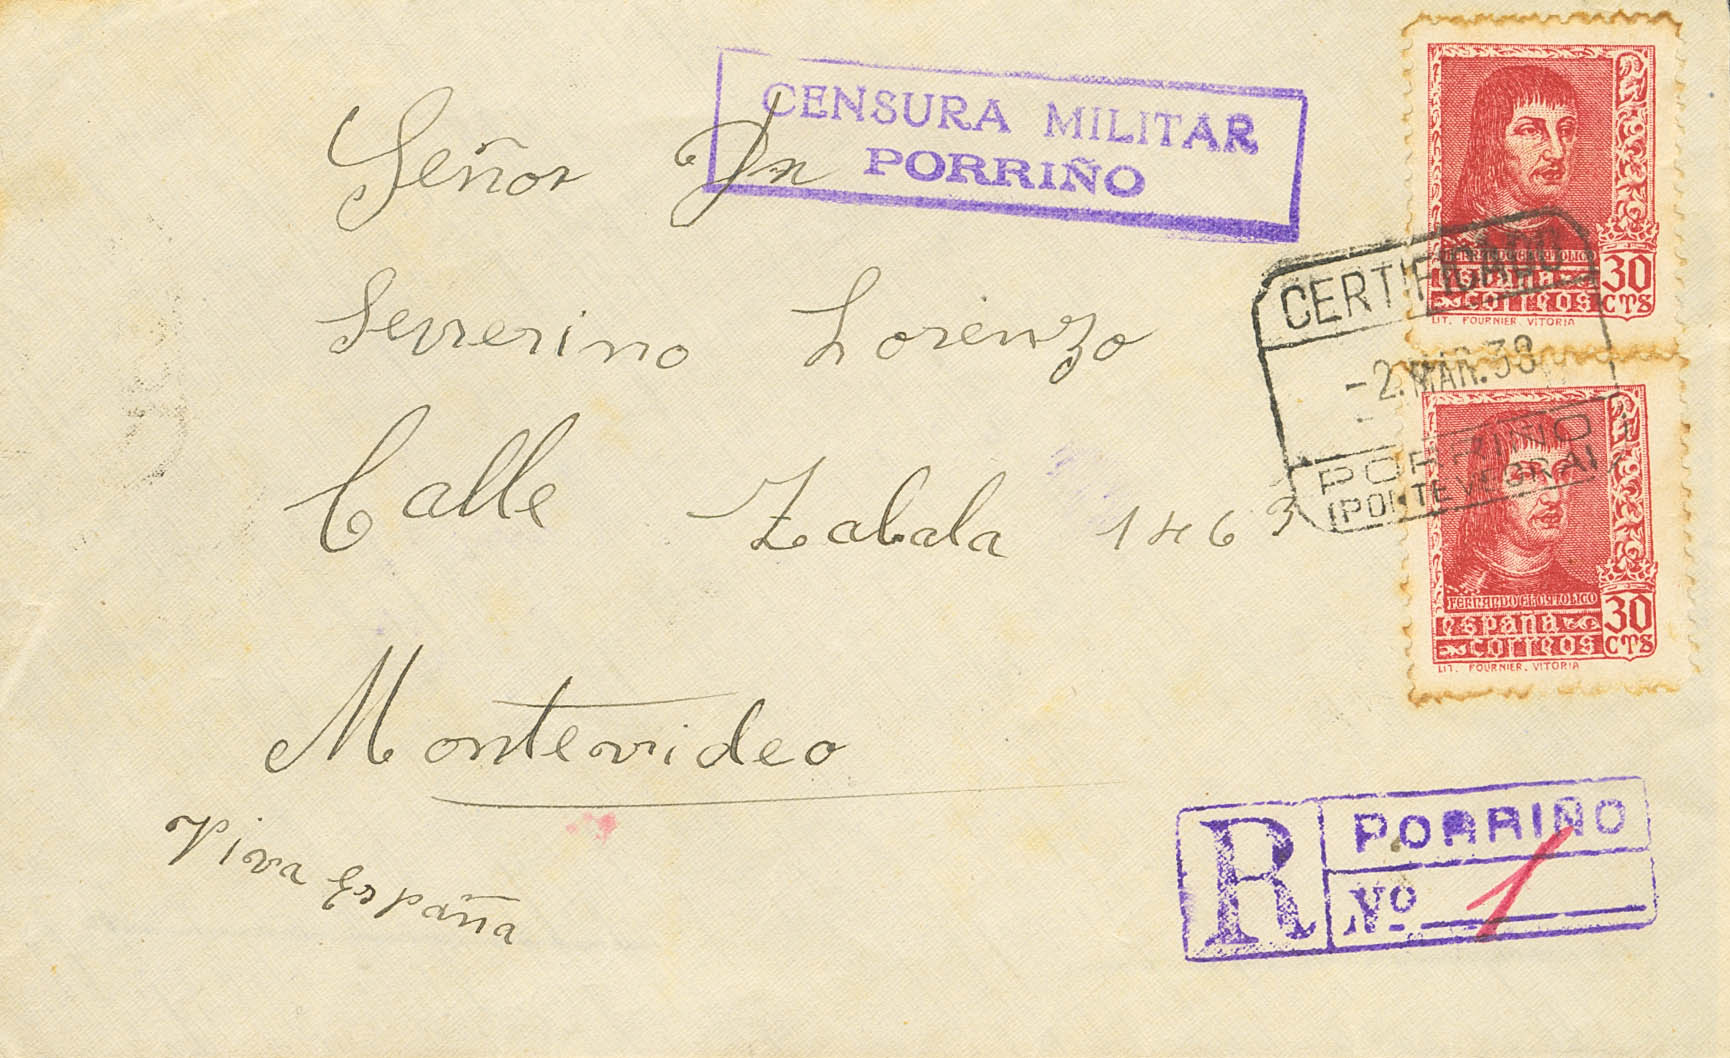 Señor Dn
Severino Lorenzo
Calle Zabala 1463
Montevideo
Viva España
CENSURA MILITAR
PORRIÑO
FERNANDO EL CATOLICO
ESPAÑA
CORREOS
30
CTS
LIT. FOURNIER. VITORIA
CERTIFICADO
-2.MAR.38
PORRIÑO
(PONTEVEDRA)
FERNANDO EL CATOLICO
ESPAÑA
CORREOS
30
CTS
LIT. FOURNIER. VITORIA
R
PORRIÑO
Nº 1